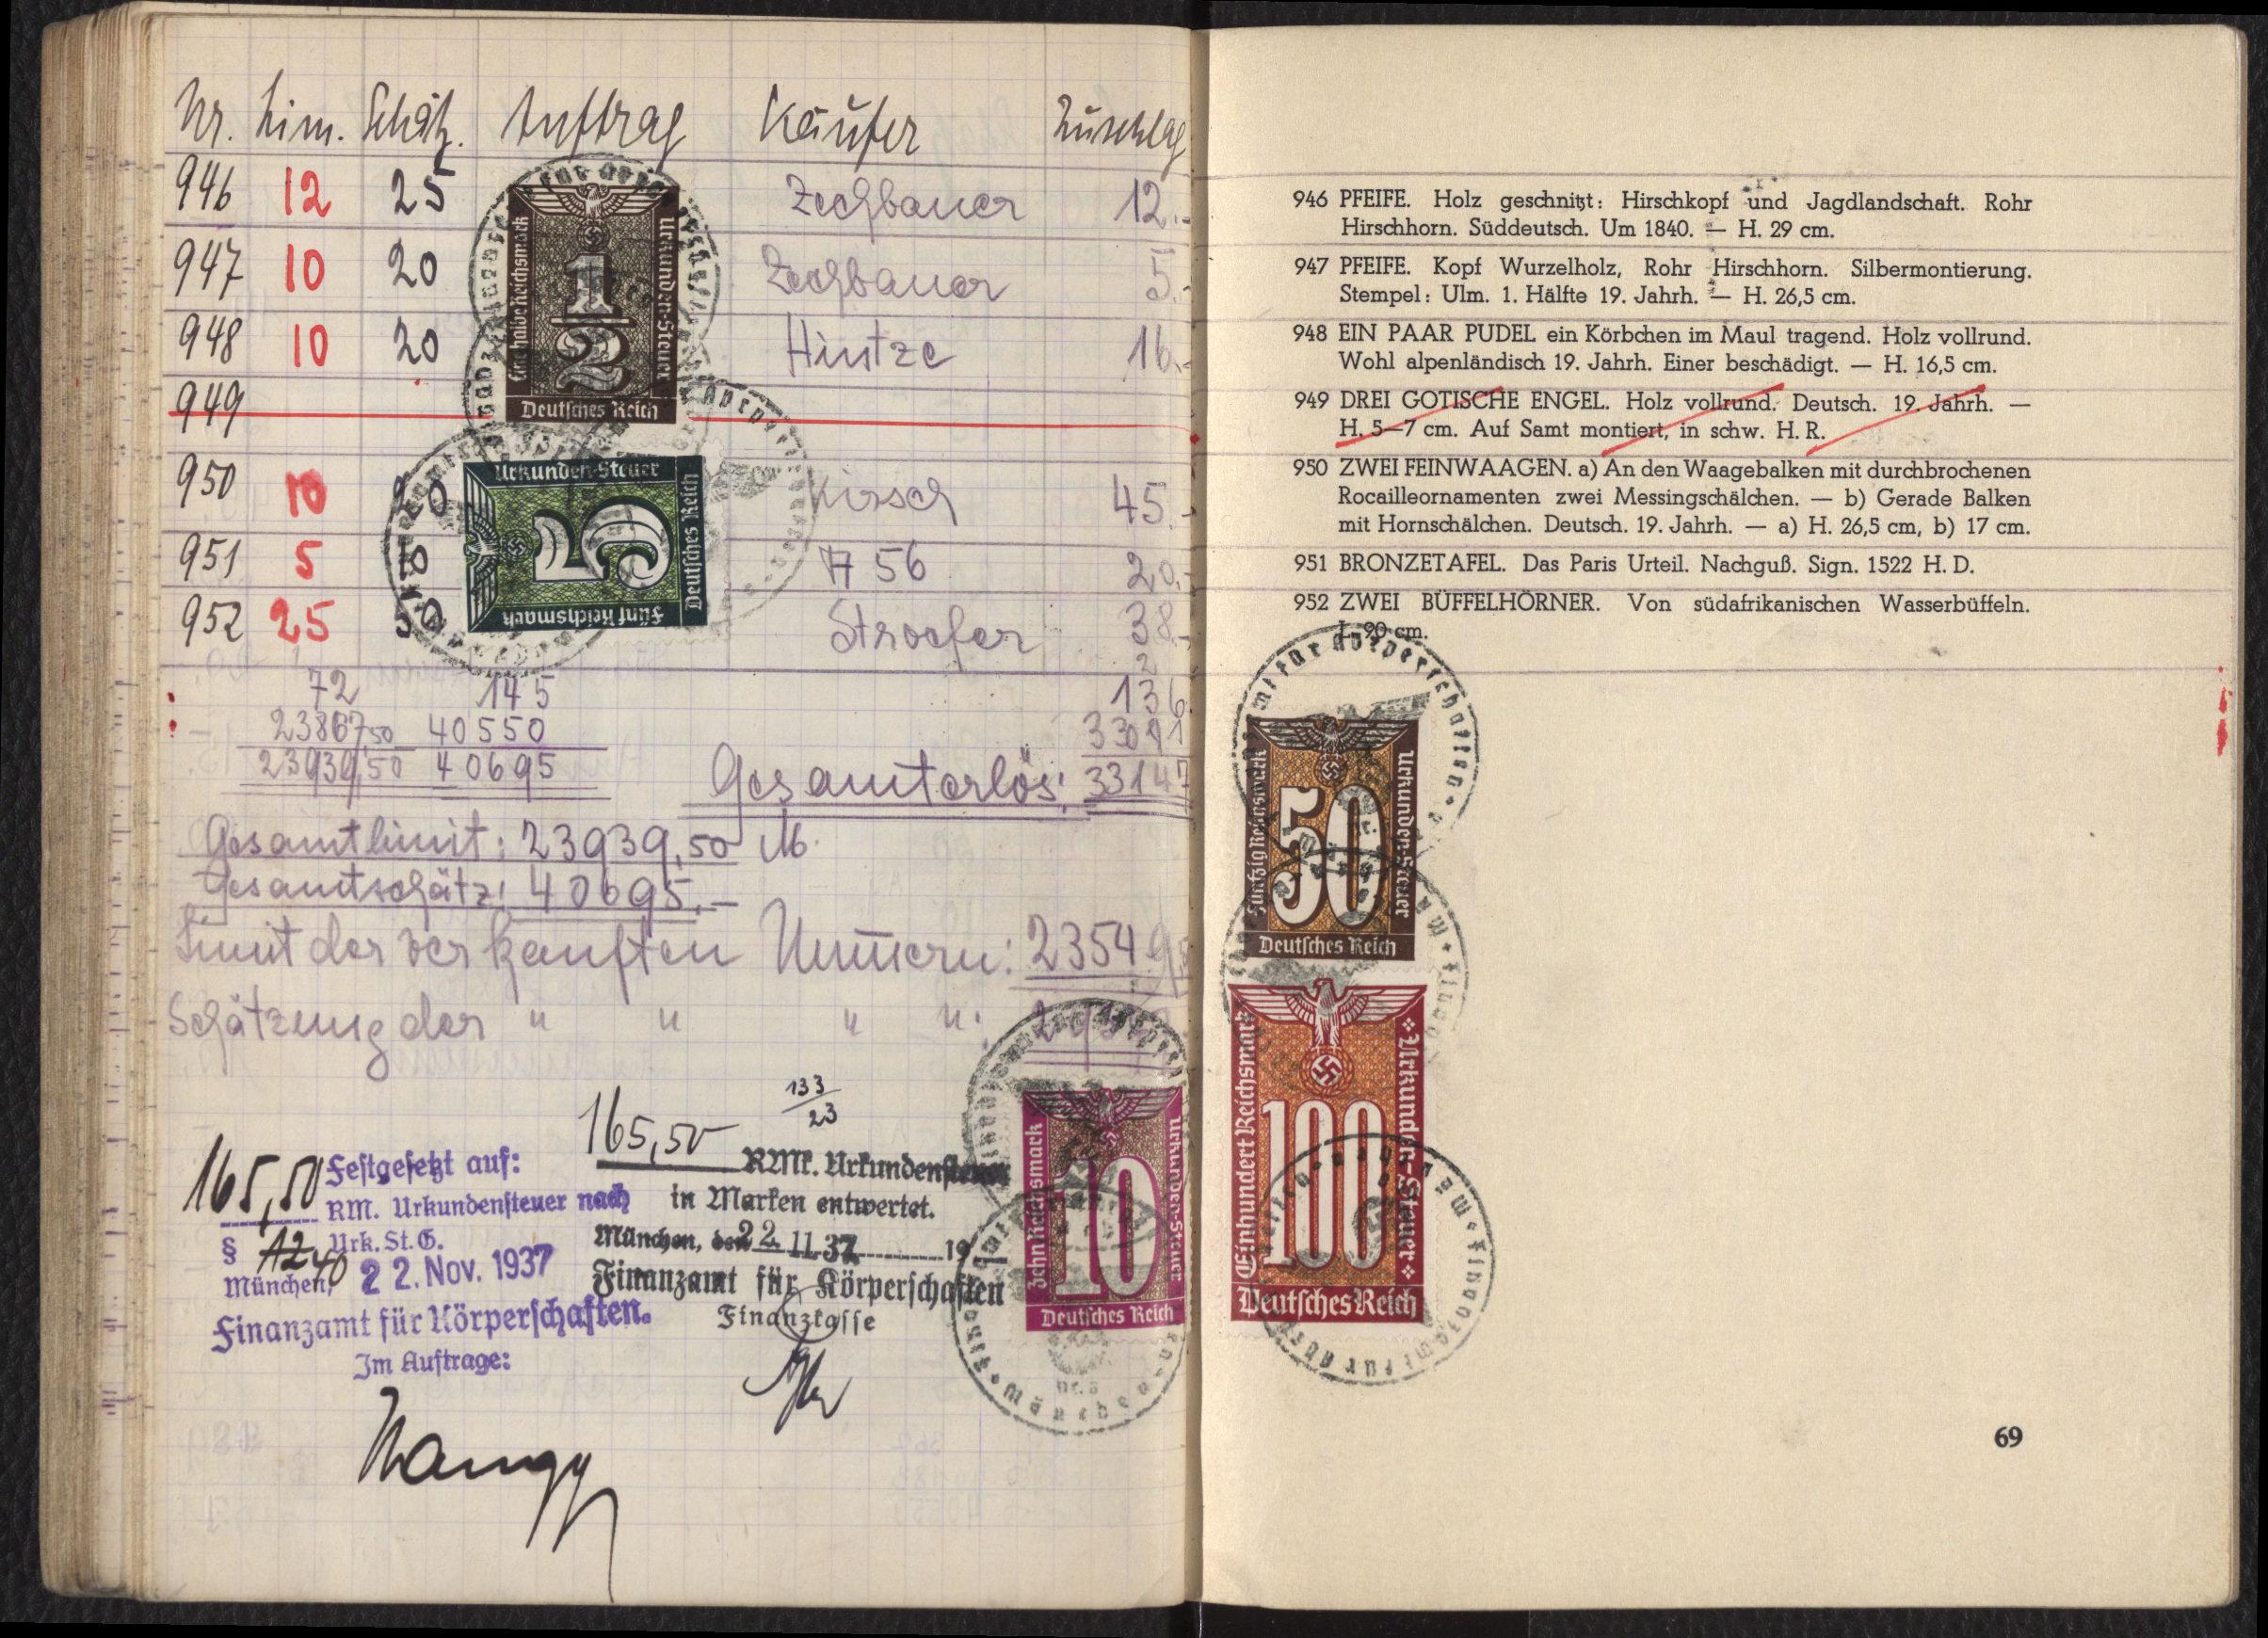 Nr. Lim. Schätz. Auftrag Käufer Zuschlag
946 12 25 Zechbauer 12.-
947 10 20 Zechbauer 5.-
948 10 20 Hintze 16.-
949
950 10 20 Kirsch 45.-
951 5 10 A 56 20.-
952 25 50 Stroefer 38.-
72 145 136
23867,50 40550 33011
23939,50 40695 Gesamterlös: 33147
Gesamtlimit: 23939,50 M.
Gesamtschätz: 40695.-
Limit der verkauften Nummern: 23549
Schätzung der " " " ":
Eine halbe Reichsmark
Urkunden-Steuer
1/2
Deutsches Reich
Urkunden-Steuer
5
Fünf Reichsmark
Deutsches Reich
133
23
165,50 Festgesetzt auf:
RM. Urkundensteuer nach
§ Urk. St. G.
München, 22. Nov. 1937
Finanzamt für Körperschaften.
Im Auftrage:
165,50 RMk. Urkundensteuer
in Marken entwertet.
München, den 22.11.37 19
Finanzamt für Körperschaften
Finanzkasse
Zehn Reichsmark
Urkunden-Steuer
10
Deutsches Reich
946 PFEIFE. Holz geschnitzt: Hirschkopf und Jagdlandschaft. Rohr
Hirschhorn. Süddeutsch. Um 1840. — H. 29 cm.
947 PFEIFE. Kopf Wurzelholz, Rohr Hirschhorn. Silbermontierung.
Stempel: Ulm. 1. Hälfte 19. Jahrh. — H. 26,5 cm.
948 EIN PAAR PUDEL ein Körbchen im Maul tragend. Holz vollrund.
Wohl alpenländisch 19. Jahrh. Einer beschädigt. — H. 16,5 cm.
949 DREI GOTISCHE ENGEL. Holz vollrund. Deutsch. 19. Jahrh. —
H. 5—7 cm. Auf Samt montiert, in schw. H. R.
950 ZWEI FEINWAAGEN. a) An den Waagebalken mit durchbrochenen
Rocailleornamenten zwei Messingschälchen. — b) Gerade Balken
mit Hornschälchen. Deutsch. 19. Jahrh. — a) H. 26,5 cm, b) 17 cm.
951 BRONZETAFEL. Das Paris Urteil. Nachguß. Sign. 1522 H. D.
952 ZWEI BÜFFELHÖRNER. Von südafrikanischen Wasserbüffeln.
L. 90 cm.
Fünfzig Reichsmark
Urkunden-Steuer
50
Deutsches Reich
Einhundert Reichsmark
Urkunden-Steuer
100
Deutsches Reich
69